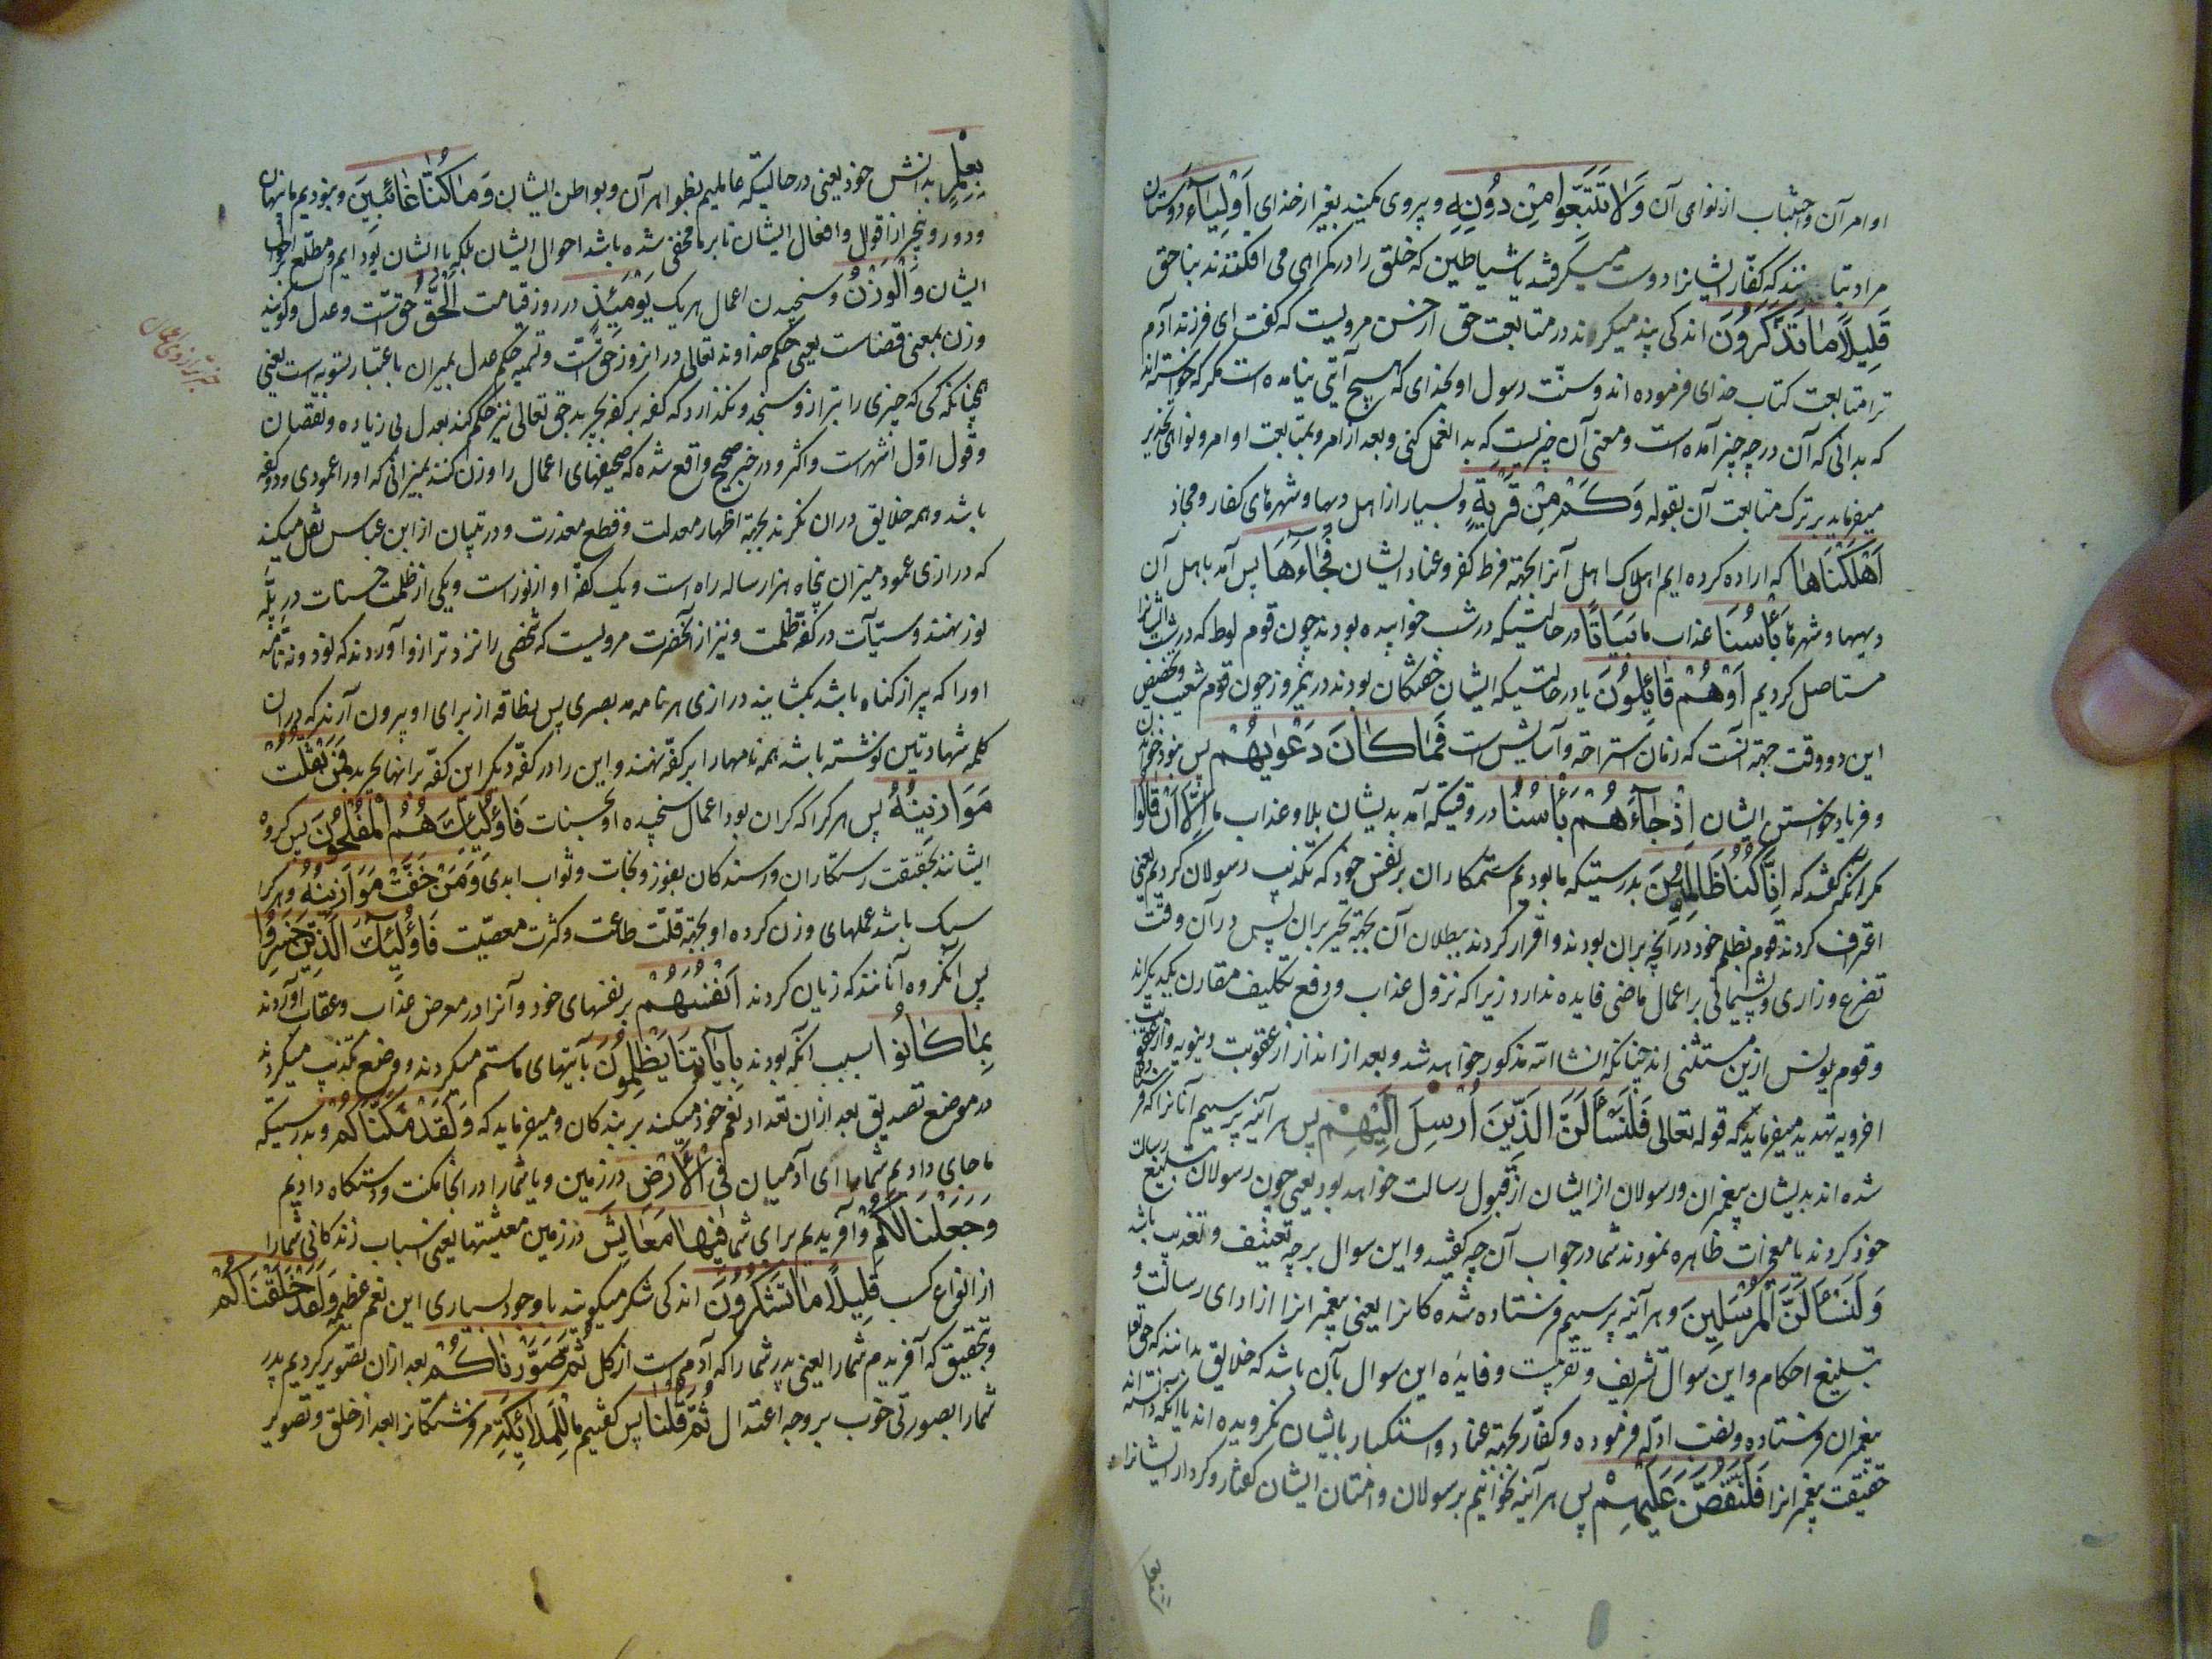 اوامر آن و اجتناب از نواهی آن وَلَا تَتَّبِعُوا مِنْ دُونِهِ و پیروی مکنید بغیر از خدای اَوْلِیَآءَ دوستان
مراد بتا نند که کفار ایشانرا دوست میگرفتند یا شیاطین که خلق را در گمراهی می افکندند بناحق
قَلِیلًا مَا تَذَکَّرُونَ اندکی پند میگیرند در متابعت حق از حسن مرویست که گفت ای فرزند آدم
ترا متابعت کتاب خدای فرموده اند و سنت رسول او بخدای که هیچ آیتی نیامده است مگر که خواسته اند
که بدانی که آن در چه چیز آمده است و معنی آن چیست که بدان عمل کنی و بعد از امر و بمتابعت اوامر و نواهی تحذیر
میفرماید بر ترک متابعت آن بقوله وَکَمْ مِنْ قَرْیَةٍ و بسیار از اهل دیها و شهرهای کفار و فجار
اَهْلَکْنَاهَا که اراده کرده ایم اهلاک اهل آنرا بجهة فرط کفر و عناد ایشان فَجَاءَهَا پس آمد باهل آن
دیهها و شهرها بَأْسُنَا عذاب ما بَیَاتًا در حالتیکه در شب خوابیده بودند چون قوم لوط که در شب ایشانرا
مستاصل کردیم اَوْهُمْ قَائِلُونَ یا در حالتیکه ایشان خفتگان بودند در نیمروز چون قوم شعیب و تخصیص
این دو وقت جهة آنست که زمان استراحة و آسایش است فَمَا کَانَ دَعْوٰیهُمْ پس نبود خواندن
و فریاد خواستن ایشان اِذْ جَآءَهُمْ بَأْسُنَا در وقتیکه آمد بدیشان بلا و عذاب ما اِلَّا اَنْ قَالُوا
مگر آنکه گفتند که اِنَّا کُنَّا ظَالِمِینَ بدرستیکه ما بودیم ستمکاران بر نفس خود که تکذیب رسولان کردیم یعنی
اعتراف کردند قوم بظلم خود در آنچه بر آن بودند و اقرار کردند ببطلان آن بجهة تحیر بر آن پس در آن وقت
تضرع و زاری و پشیمانی بر اعمال ماضی فایده ندارد زیرا که نزول عذاب و دفع تکلیف مقارن یکدیگراند
و قوم یونس ازین مستثنی اند چنانکه انشاالله مذکور خواهد شد و بعد از انذار از عقوبت دنیویه و از عقوبت
اخرویه تهدید میفرماید که قوله تعالی فَلَنَسْأَلَنَّ الَّذِینَ اُرْسِلَ اِلَیْهِمْ پس هر آینه پرسیم آنانرا که فرستاده
شده اند بدیشان پیغمبران و رسولان از ایشان از قبول رسالت خواهد بود یعنی چون رسولان تبلیغ رسالت
خود کردند با معجزات ظاهره نمودند شما در جواب آن چه گفتید و این سوال بر چه تعنیف و تعذیب باشد
وَلَنَسْأَلَنَّ الْمُرْسَلِینَ و هر آینه پرسیم فرستاده شده کانرا یعنی پیغمبرانرا از ادای رسالت و
تبلیغ احکام و این سوال تشریف و تقریبت و فایده این سوال بآن باشد که خلایق بدانند که حق تعا
پیغمبران فرستاده و نصب ادله فرموده و کفار بجهة عناد و استکبار بایشان نگرویده اند با آنکه دانسته اند
حقیقت پیغمبرانرا فَلَنَقُصَّنَّ عَلَیْهِمْ پس هر آینه بخوانیم بر رسولان و امتان ایشان گفتار و کردار ایشانرا
بِعِلْمٍ بدانش خود یعنی در حالتیکه عالمیم بظواهر آن و بواطن ایشان وَمَا کُنَّا غَائِبِینَ و نبودیم ما پنهان
و دور و بیخبر از اقوال و افعال ایشان تا بر ما مخفی شده باشد احوال ایشان بلکه با ایشان بوده ایم و مطلع بر احوال
ایشان وَالْوَزْنُ و سنجیدن اعمال هر یک یَوْمَئِذٍ در روز قیامت الْحَقُّ حق است و عدل و گویند
وزن بمعنی قضاست یعنی حکم خداوند تعالی در انروز حق است و تسمیه حکم عدل بمیزان باعتبار تسویه است یعنی
همچنانکه کسی که چیزی را بترازو سنجد و نگذارد که کفه بر کفه بچربد حق تعالی نیز حکم کند بعدل بی زیاده و نقصان
و قول اول اشهر است و اکثر و در خبر صحیح واقع شده که صحیفهای اعمال را وزن کنند بمیزانی که اورا عمودی و دو کفه
باشد و همه خلایق در آن نگرند بجهة اظهار معدلت و قطع معذرت و در تبیان از ابن عباس نقل میکند
که درازی عمود میزان پنجاه هزار ساله راه است و یک کفه او از نور است و یکی از ظلمت حسنات در پله
نور نهند و سیّآت در کفه ظلمت و نیز از آنحضرت مرویست که شخصی را نزد ترازو آوردند که نود و نه نامه
اورا که پر از گناه باشد بگشایند درازی هر نامه مد بصری پس بطاقه از برای او بیرون آرند که در آن
کلمه شهادتین نوشته باشد همه نامها را بر کفه نهند و این را در کفه دیگر این کفه بر آنها بچربد فَمَنْ ثَقُلَتْ
مَوَازِینُهُ پس هر کرا که گران بود اعمال سنجیده او بحسنات فَاُولٰئِکَ هُمُ الْمُفْلِحُونَ پس گروه
ایشانند بحقیقت رستگاران و رسندکان بفوز و نجات و ثواب ابدی وَمَنْ خَفَّتْ مَوَازِینُهُ و هر کرا
سبک باشد عملهای وزن کرده او بجهة قلت طاعت و کثرت معصیت فَاُولٰئِکَ الَّذِینَ خَسِرُوا
پس آنگروه آنانند که زیان کردند اَنْفُسَهُمْ بر نفسهای خود و آنرا در معرض عذاب و عقاب آوردند
بِمَا کَانُوا بسبب آنکه بودند بِاٰیَاتِنَا یَظْلِمُونَ بآیتهای ما ستم میکردند و وضع تکذیب میکردند
در موضع تصدیق بعد از آن تعداد نعم خود میکند بر بندکان و میفرماید که وَلَقَدْ مَکَّنَّاکُمْ و بدرستیکه
ما جای دادیم شمارا ای آدمیان فِی الْاَرْضِ در زمین و یا شمارا در انجا مکنت و دستگاه دادیم
وَجَعَلْنَا لَکُمْ و آفریدیم برای شما فِیهَا مَعَایِشَ در زمین معیشتها یعنی اسباب زندکانی شمارا
از انواع کسب قَلِیلًا مَا تَشْکُرُونَ اندکی شکر میگویند با وجود بسیاری این نعم عظیمه وَلَقَدْ خَلَقْنَاکُمْ
و بتحقیق که آفریدیم شمارا یعنی پدر شمارا که آدم است از گل ثُمَّ صَوَّرْنَاکُمْ بعد از آن تصویر کردیم پدر
شمارا بصورتی خوب بر وجه اعتدال ثُمَّ قُلْنَا پس گفتیم ما لِلْمَلَائِکَةِ مر فرشتگانرا بعد از خلق و تصویر